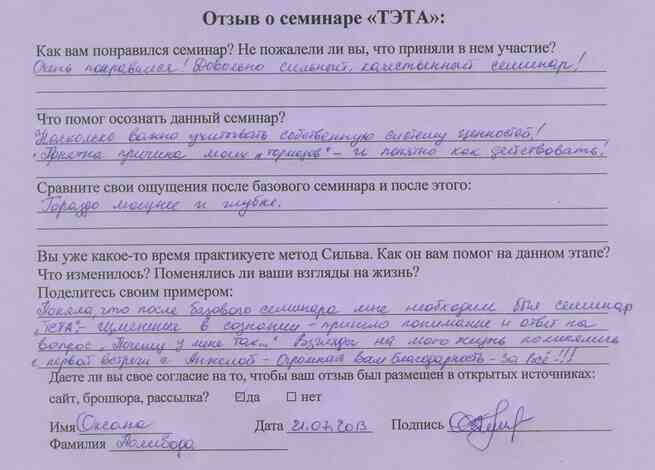 Отзыв о семинаре «ТЭТА»:
Как вам понравился семинар? Не пожалели ли вы, что приняли в нем участие?
Очень понравился! Довольно сильный, качественный семинар!
Что помог осознать данный семинар?
Насколько важно учитывать собственную систему ценностей!
Понятна причина моих „тормозов“ - и понятно как действовать!
Сравните свои ощущения после базового семинара и после этого:
Гораздо мощнее и глубже.
Вы уже какое-то время практикуете метод Сильва. Как он вам помог на данном этапе?
Что изменилось? Поменялись ли ваши взгляды на жизнь?
Поделитесь своим примером:
Поняла, что после базового семинара мне необходим был семинар
„ТЕТА“ - Изменение в сознании - пришло понимание и ответ на
вопрос „Почему у меня так..“ Взгляды на мою жизнь поменялись
с первой встречи с - Огромная Вам Благодарность - за Всё!!!
Даете ли вы свое согласие на то, чтобы ваш отзыв был размещен в открытых источниках:
сайт, брошюра, рассылка? ☑да ☐ нет
Имя Оксана Дата 21.07.2013 Подпись
Фамилия